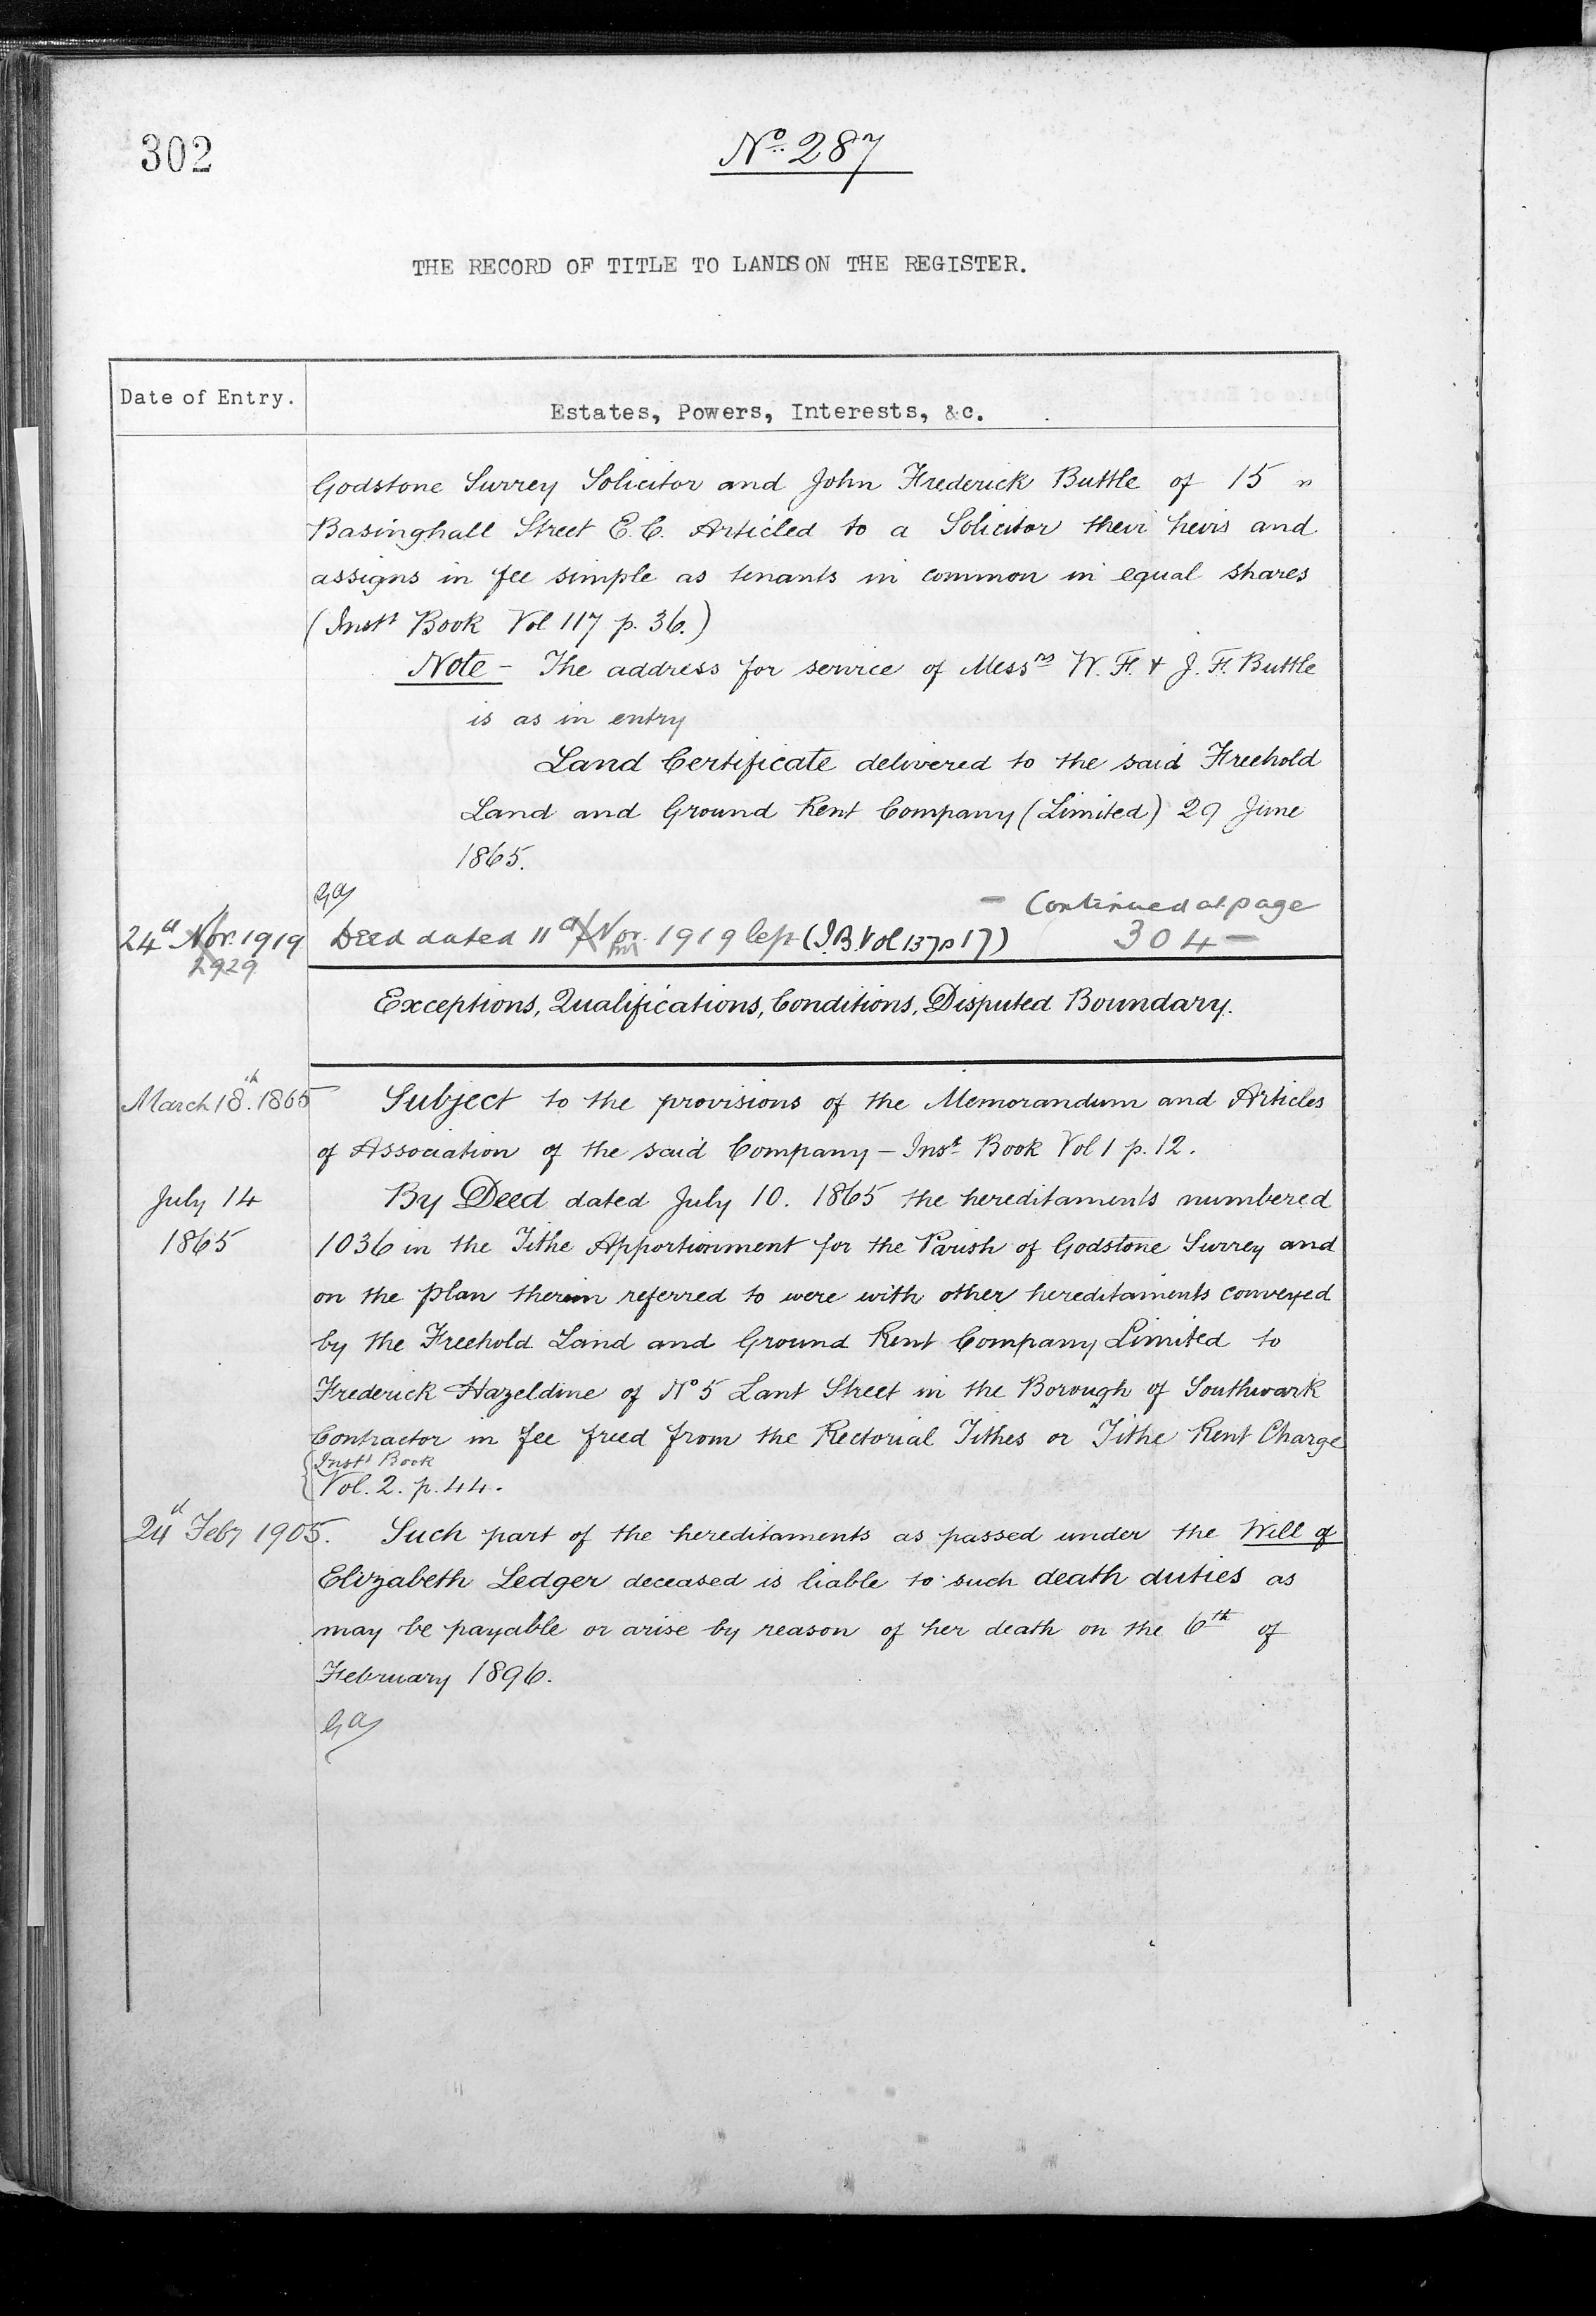 302
No. 287
THE RECORD OF TITLE TO LANDS ON THE REGISTER.
Date of Entry.
Estates, Powers, Interests, &c.
Godstone Surrey Solicitor and John Frederick Buttle of 15
Basinghall Street E.C. Articled to a Solicitor their heirs and
assigns in fee simple as tenants in common in equal shares
(Instt Book Vol 117 p. 36.)
Note - The address for service of Messrs W. F. & J. F. Buttle
is as in entry
Land Certificate delivered to the said Freehold
Land and Ground Rent Company (Limited) 29 June
1865.
- Continued at page
24th Nov. 1919 Deed dated 11th Nov. 1919 left (I.B. Vol 137 p 17) 304 -
2929
Exceptions, Qualifications, Conditions, Disputed Boundary.
March 18th. 1865 Subject to the provisions of the Memorandum and Articles
of Association of the said Company - Inst Book Vol 1 p. 12.
July 14 By Deed dated July 10. 1865 the hereditaments numbered
1865 1036 in the Tithe Apportionment for the Parish of Godstone Surrey and
on the plan therein referred to were with other hereditaments conveyed
by the Freehold Land and Ground Rent Company Limited to
Frederick Hazeldine of No 5 Lant Street in the Borough of Southwark
Contractor in fee freed from the Rectorial Tithes or Tithe Rent Charge
{Instt Book
Vol. 2. p. 44.
24th Feby 1905. Such part of the hereditaments as passed under the Will of
Elizabeth Ledger deceased is liable to such death duties as
may be payable or arise by reason of her death on the 6th of
February 1896.